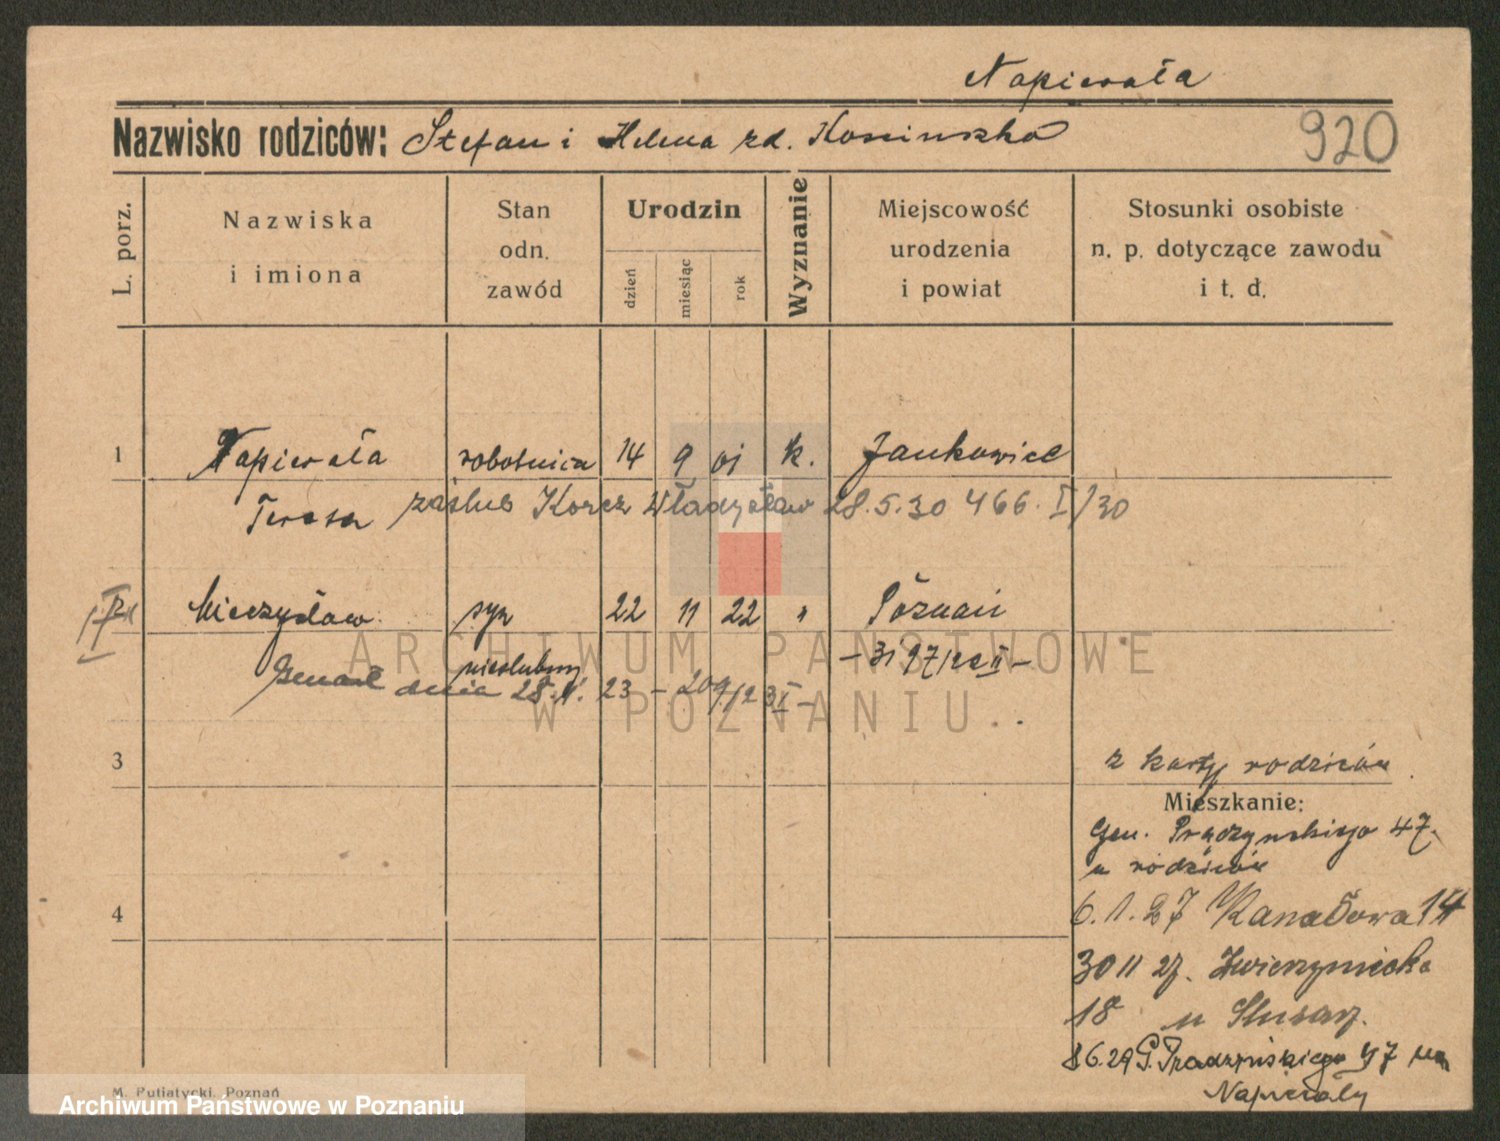 Napierała
Nazwisko rodziców: Stefan i Helena zd. Kosinska
920
L. porz.
Nazwiska
i imiona
Stan
odn.
zawód
Urodzin
dzień
miesiąc
rok
Wyznanie
Miejscowość
urodzenia
i powiat
Stosunki osobiste
n. p. dotyczące zawodu
i t. d.
1 Napierała robotnica 14 9 01 k. Jankowice
Teresa zaślub Korcz Władysław 28.5.30 466. I/30
Mieczysław syn 22 11 22 " Poznań
nieślubny
Zmarł dnia 28. 23 -
3
z karty rodziców
Mieszkanie:
Gen. Prądzyńskiego 47.
u rodziców
4
6.1.27 Kanałowa 14
30 11 27. Zwierzyniecka
18 u
8 6.29 G. Prądzyńskiego 47
Napierały
M. Putiatycki, Poznań
ARCHIWUM PAŃSTWOWE
W POZNANIU
Archiwum Państwowe w Poznaniu